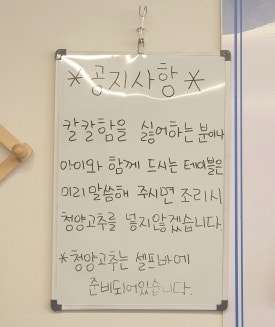 *공지사항*
칼칼함을 싫어하는 분이나
아이와 함께 드시는 테이블은
미리 말씀해 주시면 조리시
청양고추를 넣지않겠습니다.
*청양고추는 셀프바에
준비되어있습니다.